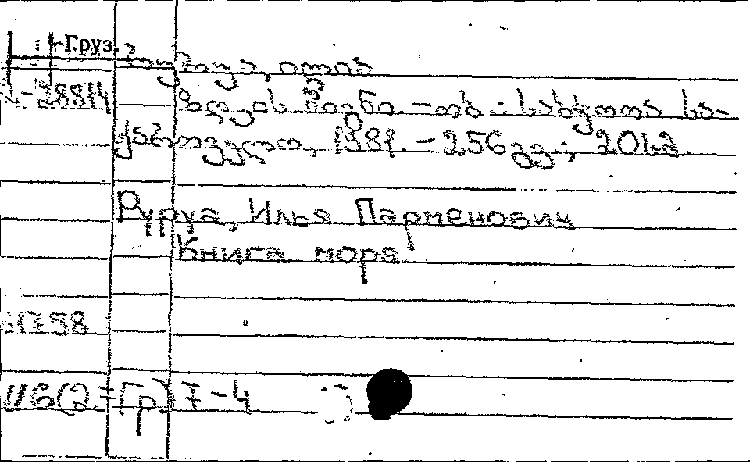 Груз.
რურუა, ილია
-28814 ზღვის წიგნი. -თბ.: საბჭოთა სა-
ქართველო, 1981. - 256 გვ.; 20სმ
Руруа, Илья Парменович
Книга моря
758
И6(2=Гр)7-4